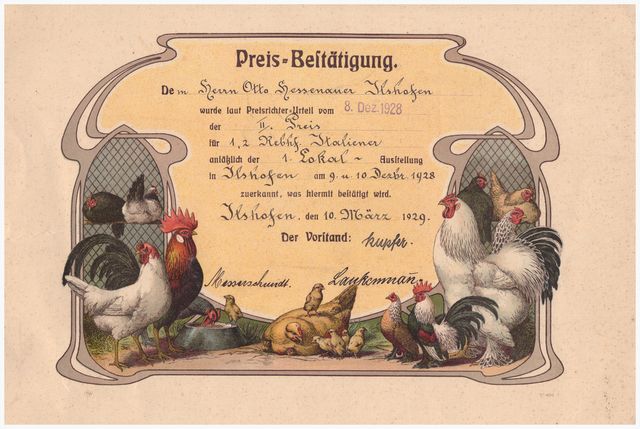 Preis-Bestätigung.
Dem Herrn Otto Hessenauer Ilshofen
wurde laut Preisrichter-Urteil vom 8. Dez. 1928
der II. Preis
für 1,2 Rebhf. Italiener
anläßlich der 1. Lokal- Ausstellung
in Ilshofen am 9. u. 10. Dezbr. 1928
zuerkannt, was hiermit bestätigt wird.
Ilshofen, den 10. März 1929.
Der Vorstand: Kupfer.
Messerschmidt. Laukenmann.